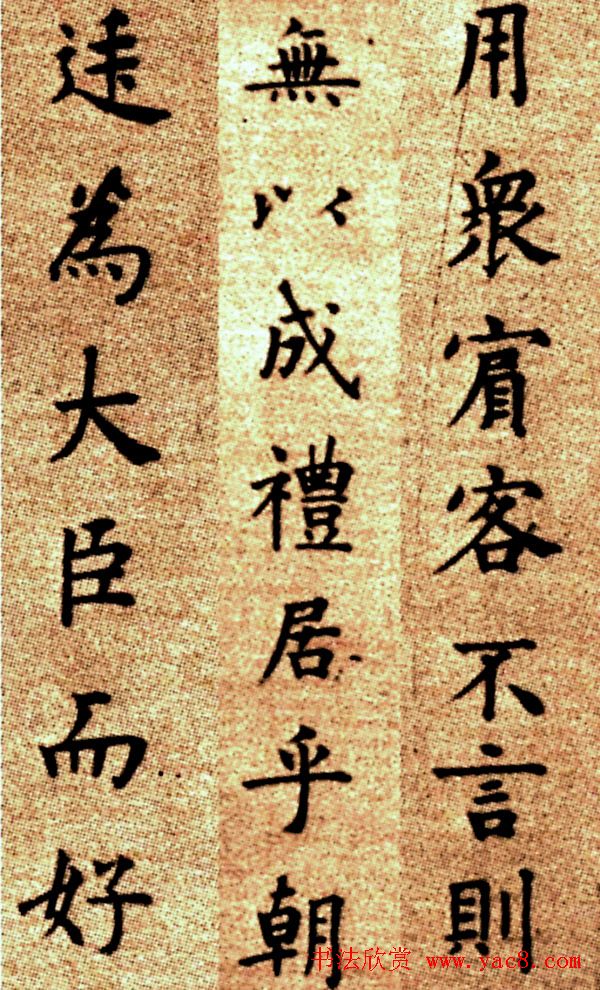 用眾賔客不言則
無以成禮居乎朝
廷為大臣而好
书法欣赏 www.yac8.com